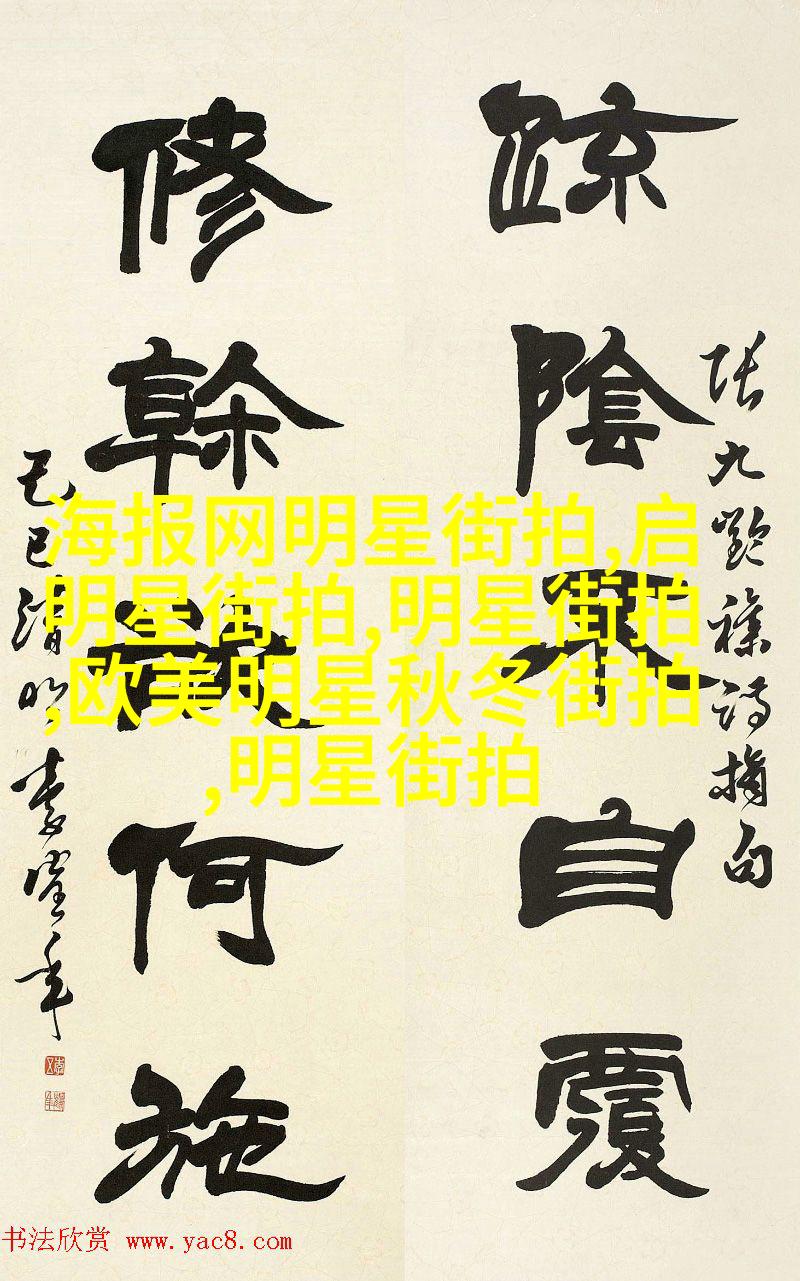 張九齡雜詩摘句
疏陰不自覆
修幹欲何施
己巳清明
海报网明星街拍,启
明星街拍,明星街拍
,欧美明星秋冬街拍
,明星街拍
书法欣赏 www.yac8.com